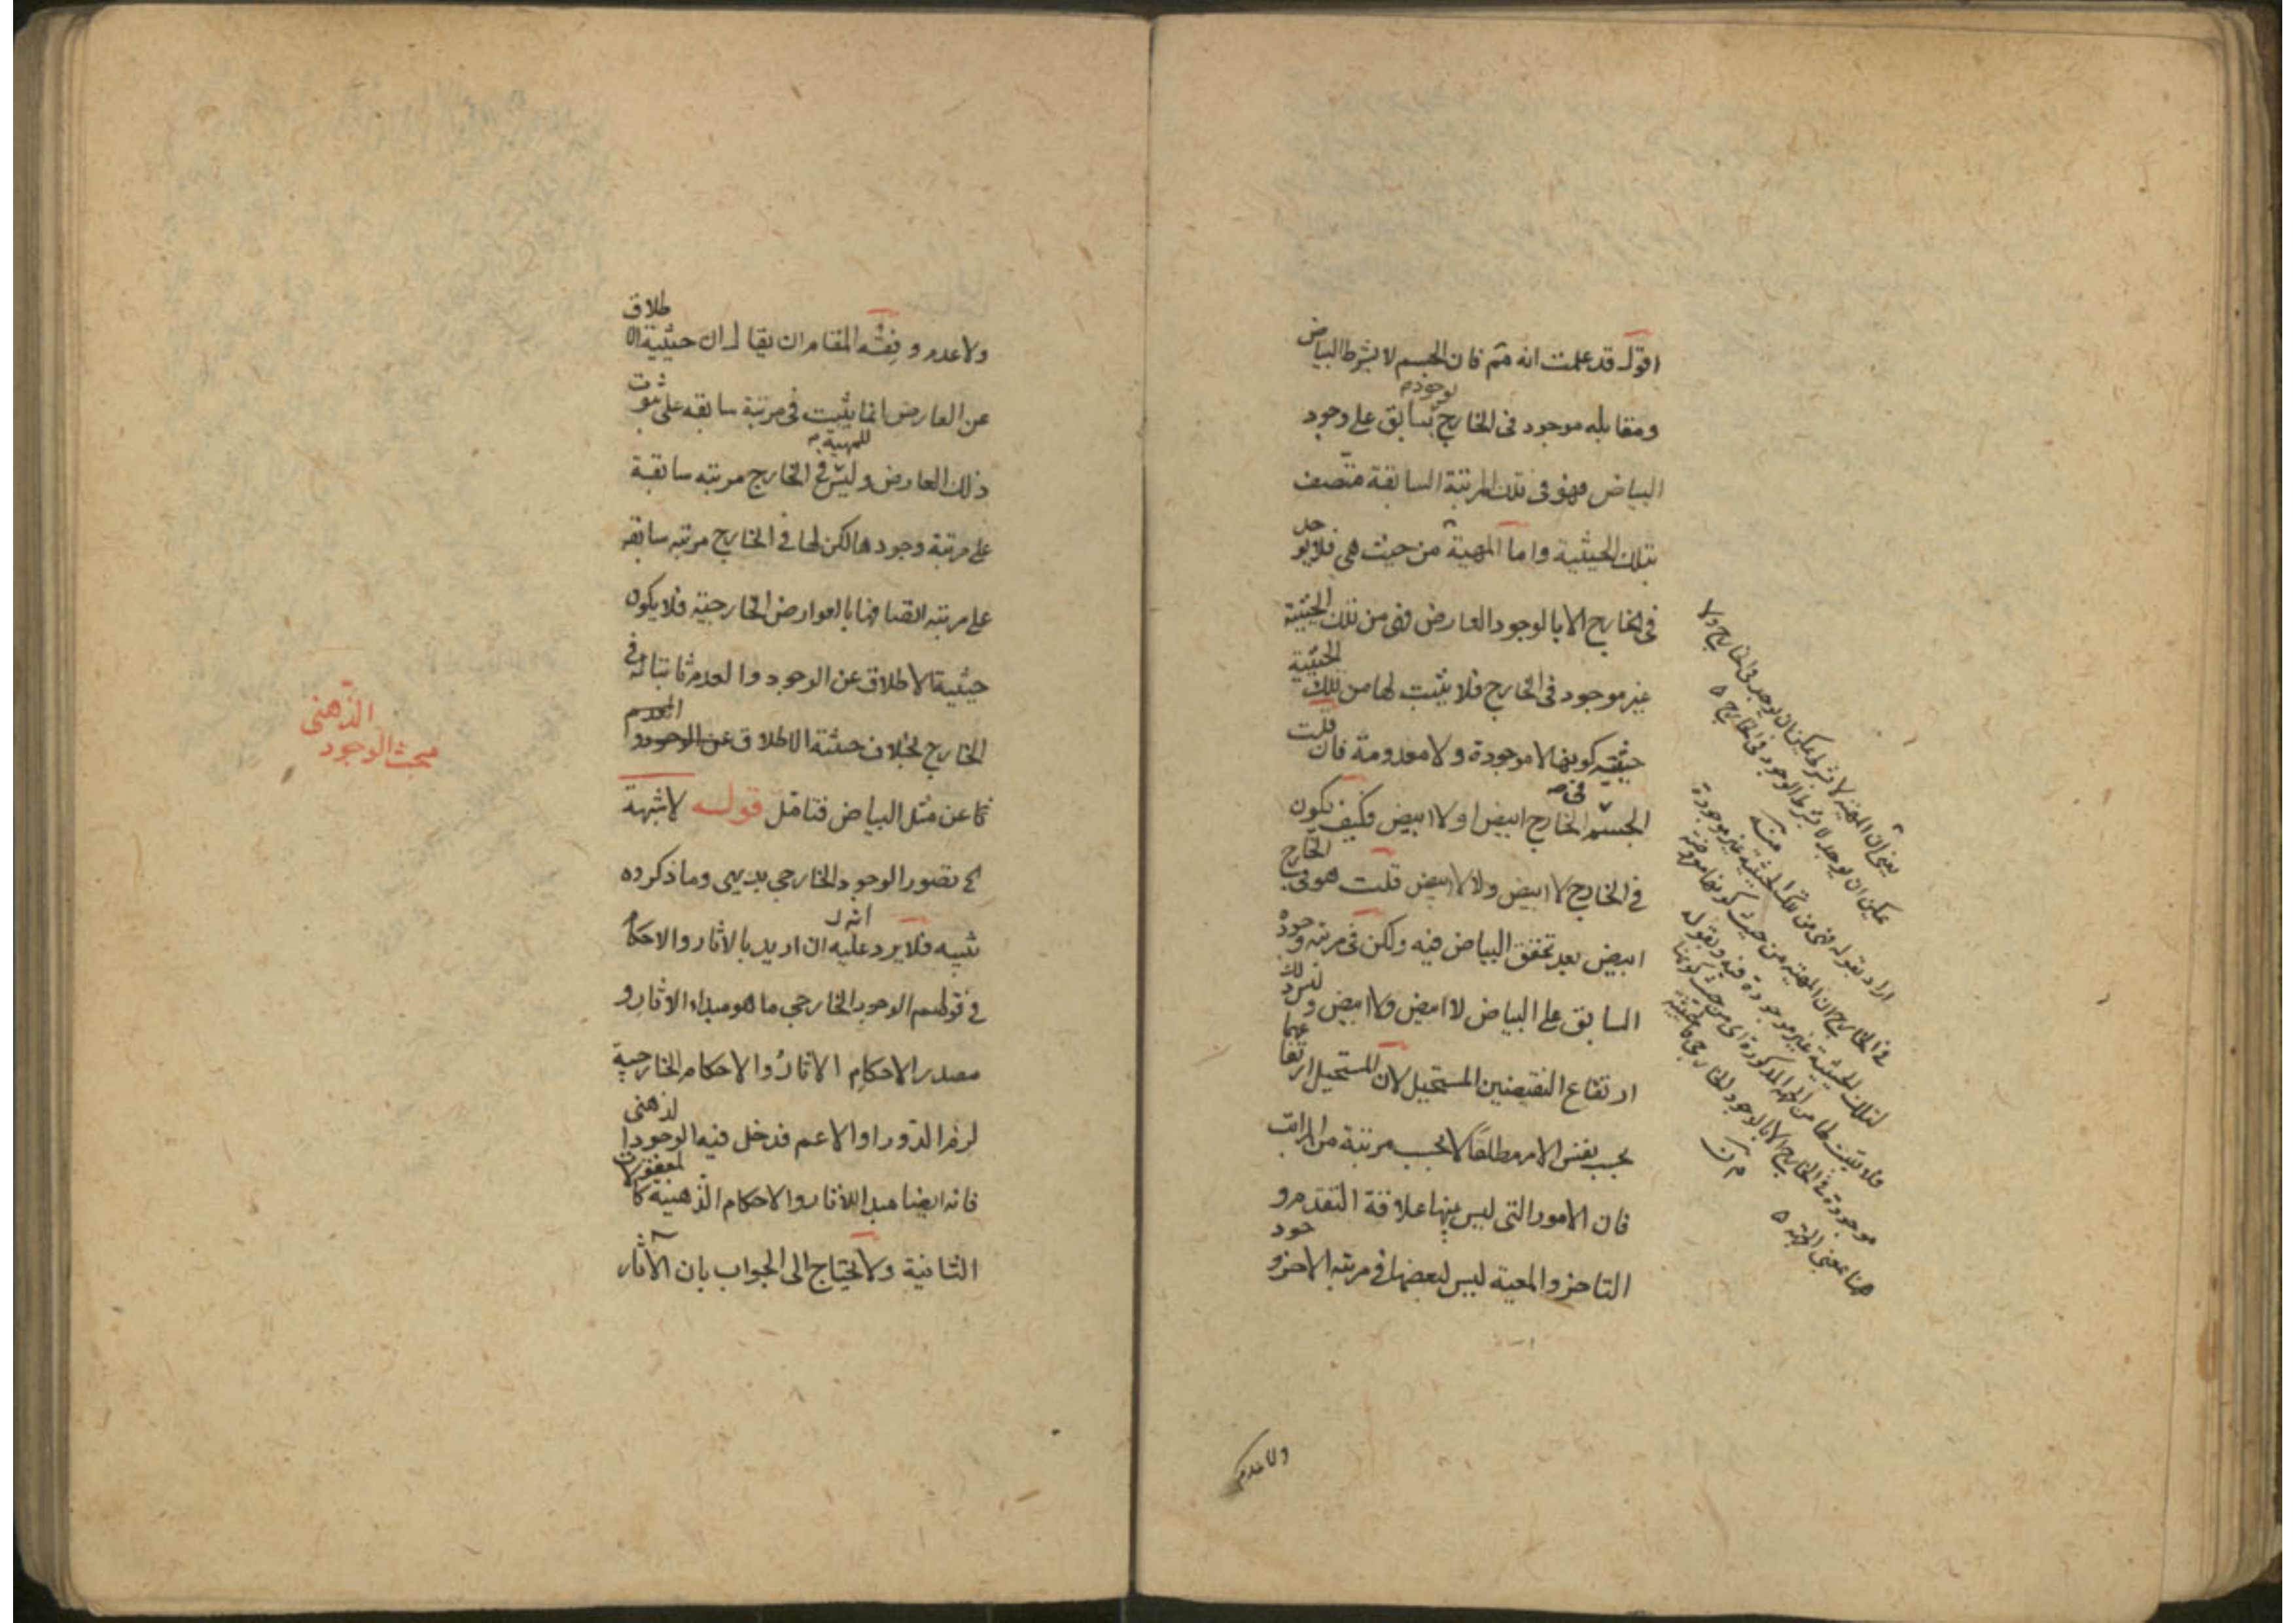 اقول قد علمت انه ثم فان الجسم لا بشرط البياض
ومقابله موجود فى الخارج بوجود سابق على وجود
البياض فهو فى تلك المرتبة السابقة متصف
بتلك الحيثية واما المهية من حيث هى فلا يوجد
فى الخارج الا بالوجود العارض فهى من تلك الحيثية
غير موجود فى الخارج فلا يثبت لها من تلك الحيثية
حيثية كونها لا موجودة ولا معدومة فان قلت
الجسم فى الخارج ابيض او لا ابيض فكيف يكون
في الخارج لا ابيض ولا لا ابيض قلت هو فى الخارج
ابيض بعد تحقق البياض فيه ولكن فى مرتبة وجوده
السابق على البياض لا ابيض ولا ابيض وليس ذلك
ارتفاع النقيضين المستحيل لان المستحيل ارتفاعهما
بحسب نفس الامر مطلقا لا بحسب مرتبة من المراتب
فان الامور التى ليس بينها علاقة التقدم و
التاخر والمعية ليس لبعضها فى مرتبة الاخر وجود
يعنى ان المهية لا بشرط يمكن ان يوجد فى الخارج ولا
يمكن ان يوجد لا بشرط الوجود فى الخارج
منه
اراد بقوله فهى من تلك الحيثية غير موجودة
فى الخارج ان المهية من حيث كونها معروضة
لتلك الحيثية غير موجودة فيه وبقوله
فلا يثبت لها من الجهة المذكورة اى من حيث كونها
موجودة فى الخارج الا بالوجود الخارجى فالحيثية
هنا بمعنى المرتبة
ولا عدم
ولا عدم وفقه المقام ان يقال ان حيثية الاطلاق
عن العارض انما يثبت فى مرتبة سابقه على ثبوت
ذلك العارض وليس للمهية فى الخارج مرتبه سابقة
على مرتبة وجودها لكن لها فى الخارج مرتبه سابقه
على مرتبه اتصافها بالعوارض الخارجية فلا يكون
حيثية الاطلاق عن الوجود والعدم ثابتا له فى
الخارج بخلاف حيثية الاطلاق عن الوجود والعدم
كا عن مثل البياض فتامل قوله لا شبهة
تصور الوجود الخارجي بديهى وما ذكروه
تنبيه فلا يرد عليه انه ان اريد بالاثار والاحكام
فى قولهم الوجود الخارجي ما هو مبداء الاثار و
مصدر الاحكام الاثار والاحكام الخارجية
لزم الدور او الاعم فدخل فيه الوجود الذهنى
فانه ايضا مبدا للاثار والاحكام الذهنية كالمعقولات
الثانية ولا يحتاج الى الجواب بان الآثار
مبحث الوجود الذهنى